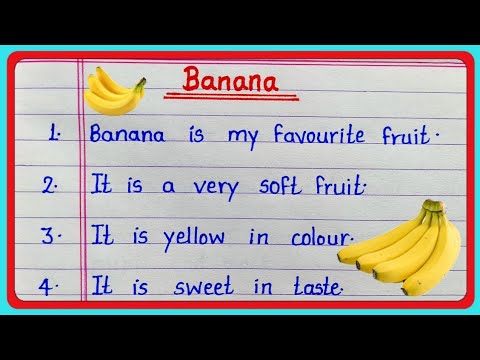 Banana
1. Banana is my favourite fruit.
2. It is a very soft fruit.
3. It is yellow in colour.
4. It is sweet in taste.